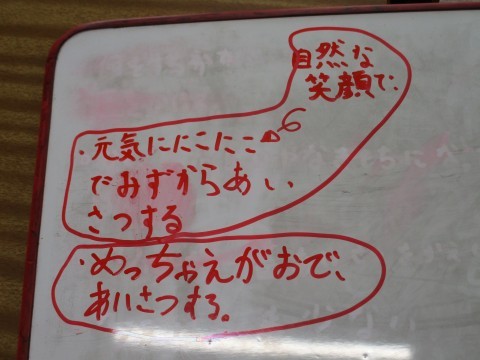 自然な
笑顔で、
・元気ににこにこ
でみずからあい
さつする
・めっちゃえがおで、
あいさつする。